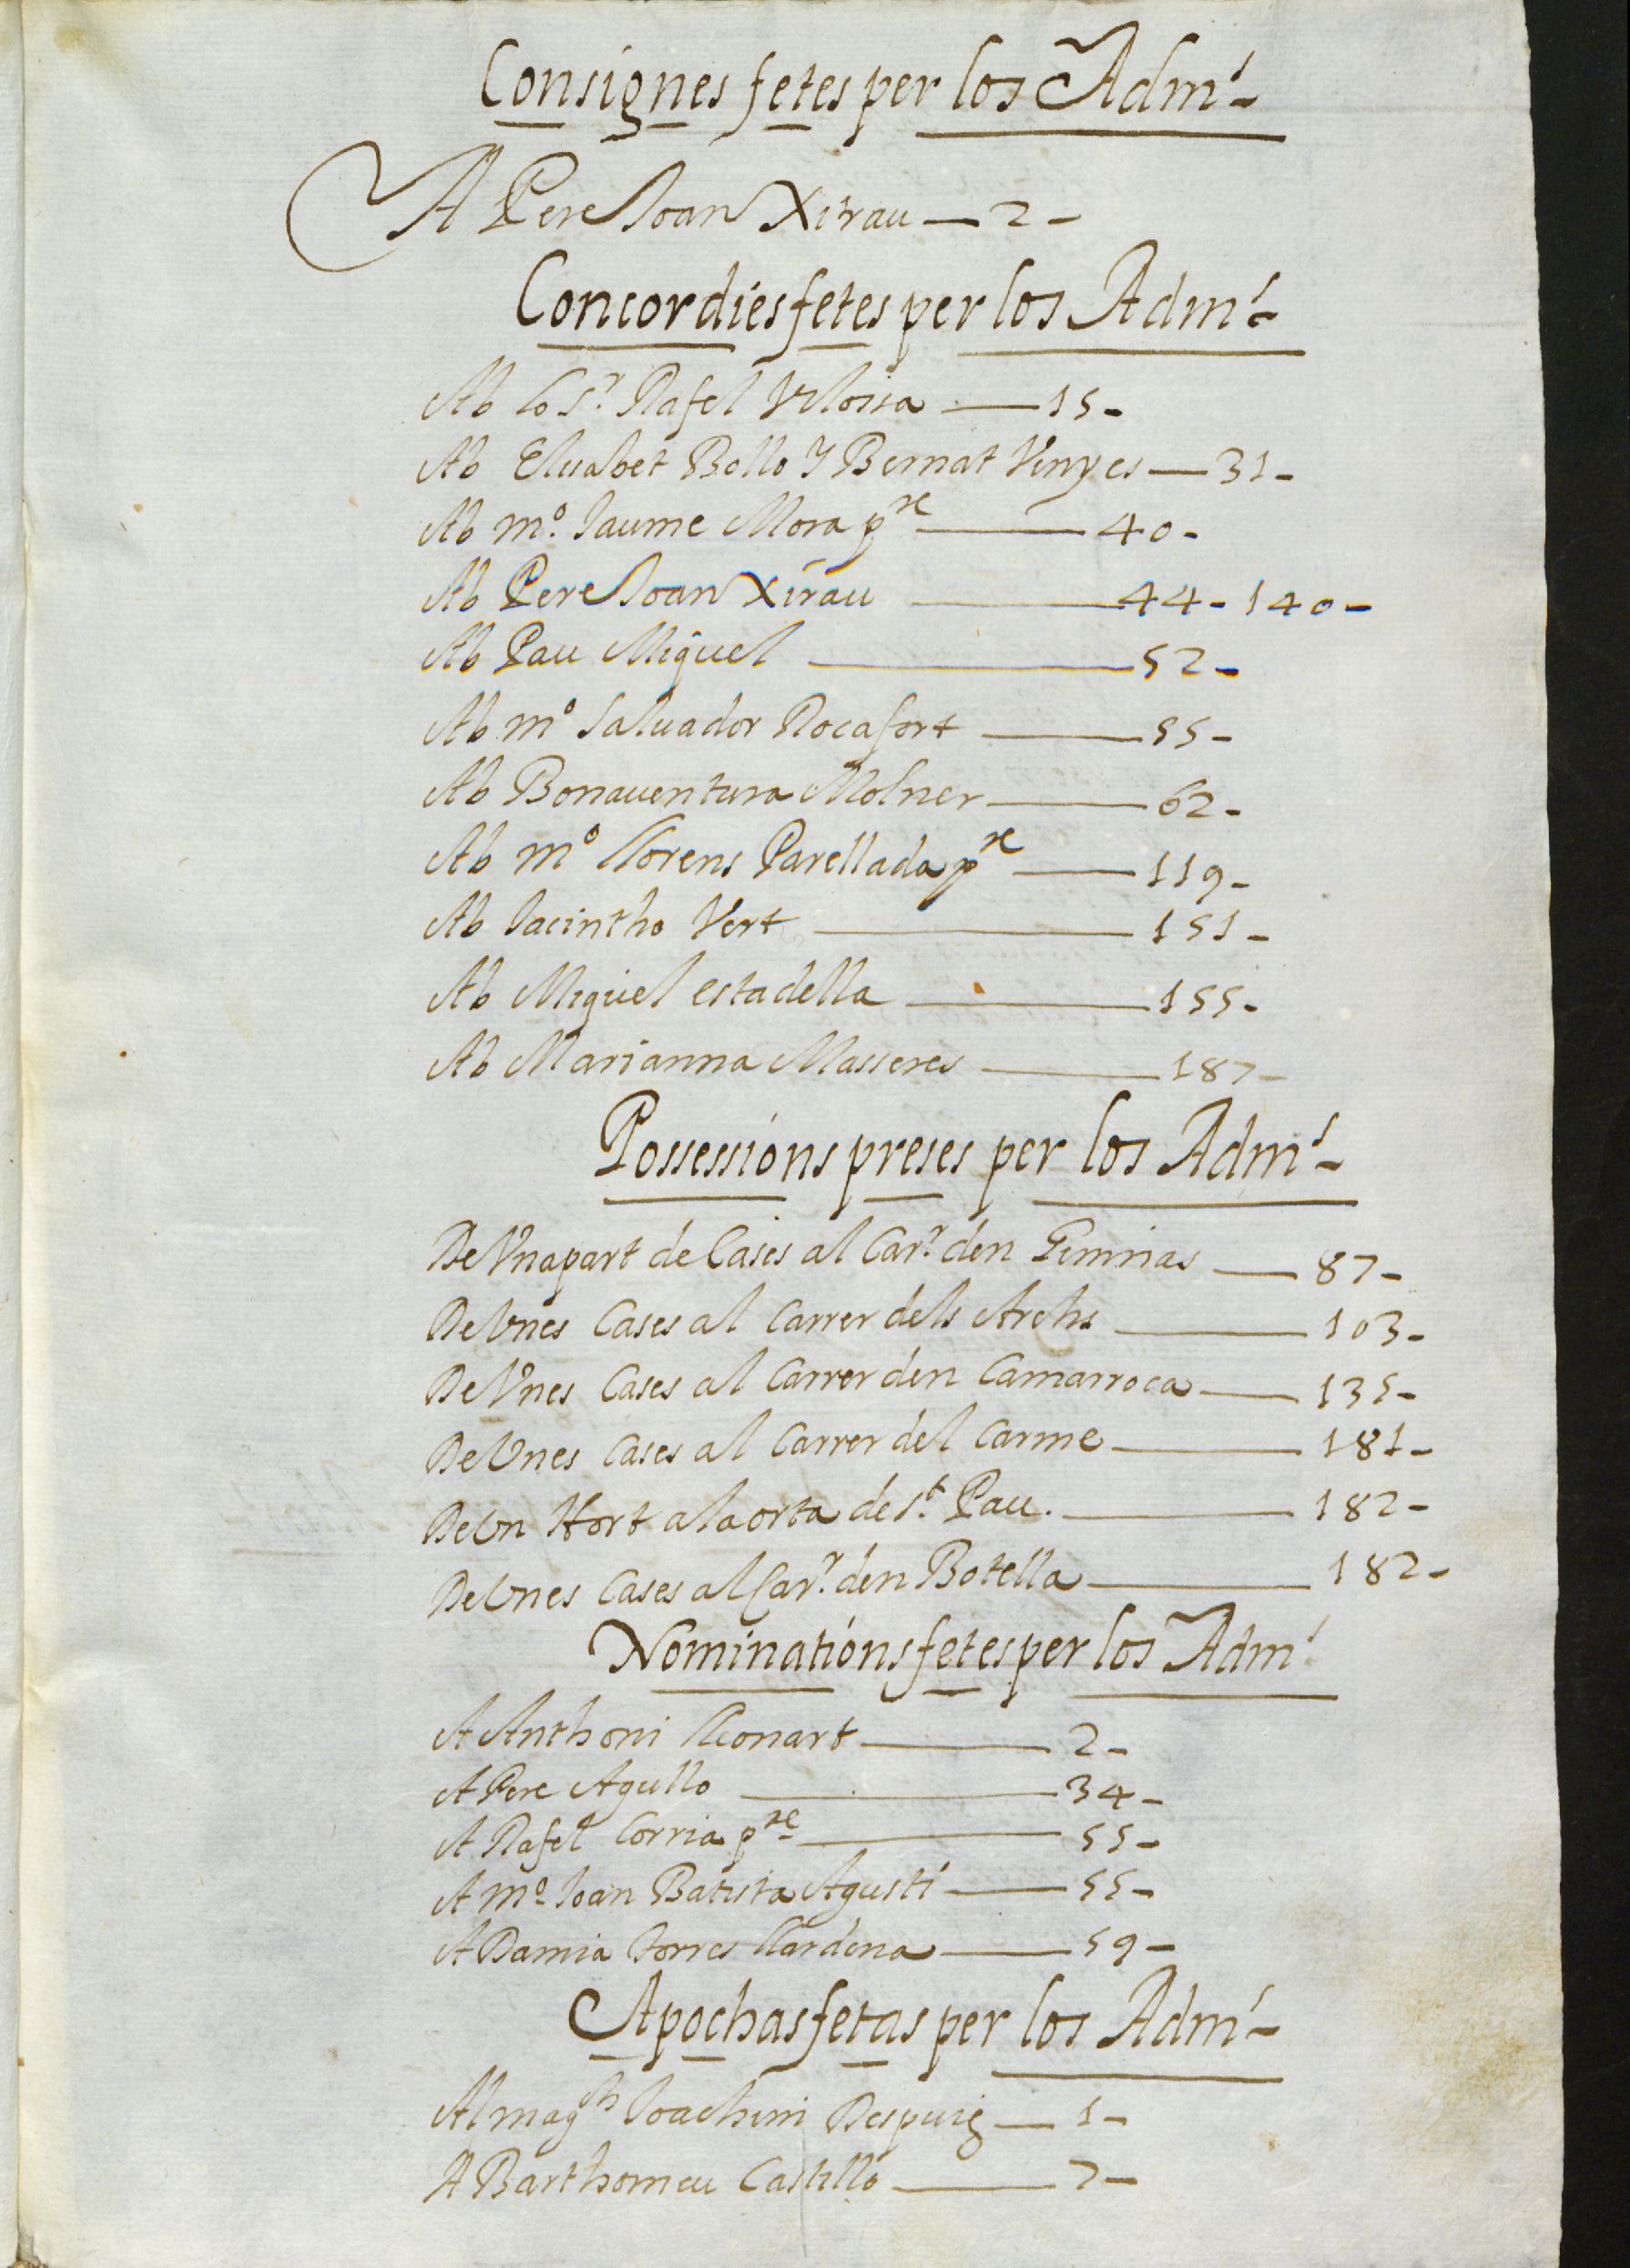 Consignes fetes per los Adm.ˢ
A Pere Joan Xirau — 2 -
Concordies fetes per los Adm.ˢ
Ab lo S.ʳ Rafel — 15 -
Ab Elisabet Bollo Y Bernat Vinyes — 31 -
Ab m.º Jaume Mora pʳᵉ — 40 -
Ab Pere Joan Xirau — 44 - 140 -
Ab Pau Miquel — 52 -
Ab mº Saluador Rocafort — 55 -
Ab Bonauentura Molner — 62 -
Ab mº Llorens Parellada pʳᵉ — 119 -
Ab Jacintho Vert — 151 -
Ab Miquel estadella — 155 -
Ab Marianna Masseres — 187 -
Possessions preses per los Adm.ˢ
De Vna part de Cases al Car.ʳ den — 87 -
De Vnes Cases al Carrer dels Archs — 103 -
De Vnes Cases al Carrer den Camarroca — 135 -
De Vnes Cases al Carrer del Carme — 181 -
De Vn Hort a la orta de S.ᵗ Pau. — 182 -
De Vnes Cases al Car.ʳ den Botella — 182 -
Nominations fetes per los Adm.ˢ
A Anthoni Lleonart — 2 -
A Pere Agullo — 34 -
A Rafel Corria pʳᵉ — 55 -
A mº Joan Batista Agusti — 55 -
A Damia torres — 59 -
Apochas fetas per los Adm.ˢ
Al magᶜʰ Joachim Despuig — 1 -
A Barthomeu Castillo — 7 -